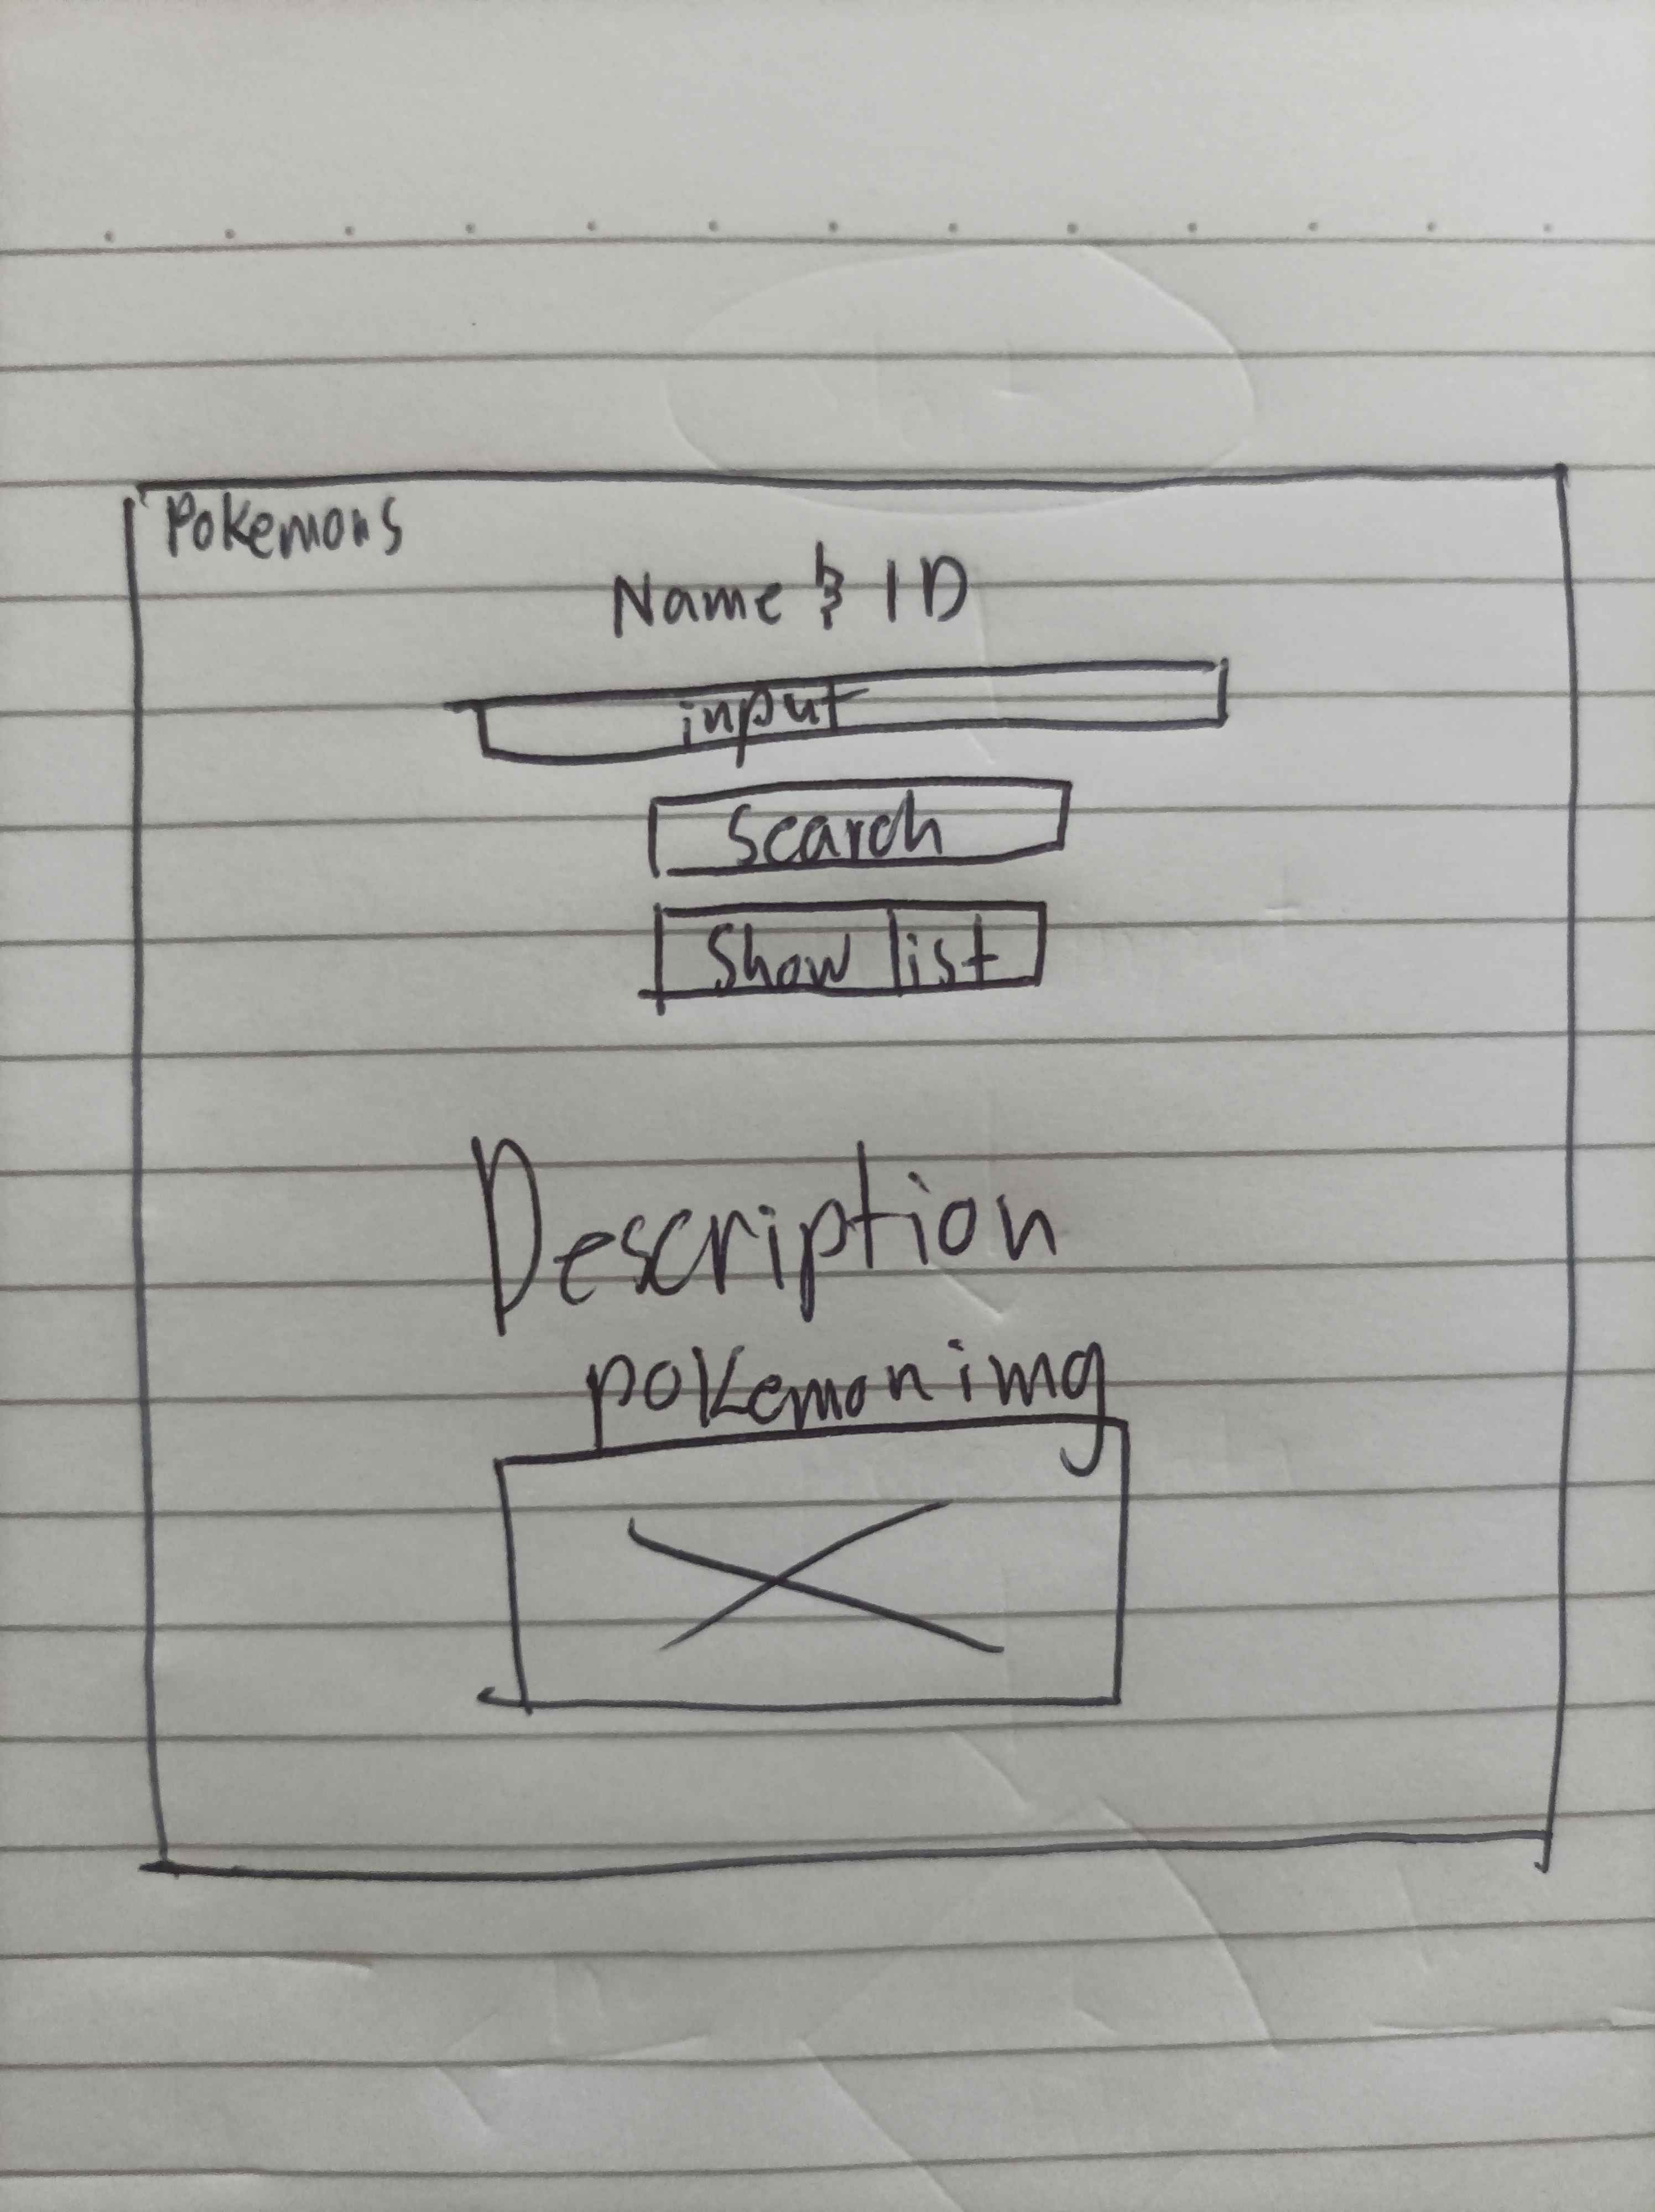 Pokemons
Name & ID
input
Search
Show list
Description
pokemon img